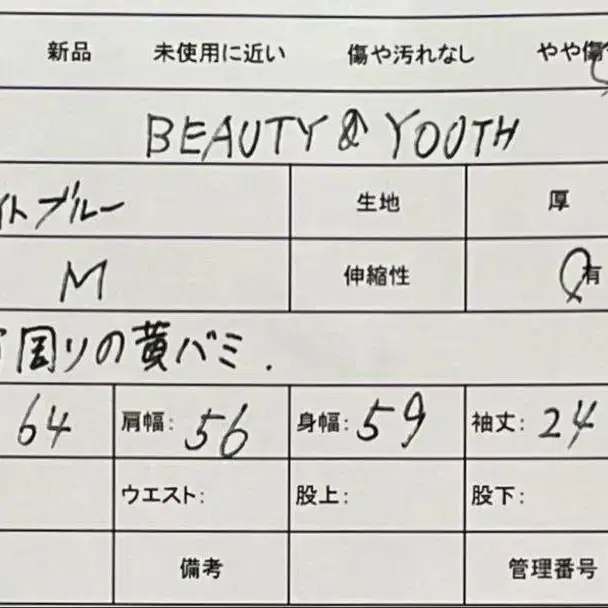 新品 未使用に近い 傷や汚れなし やや傷
BEAUTY & YOUTH
イトブルー 生地 厚
M 伸縮性 有
周りの黄バミ.
64 肩幅: 56 身幅: 59 袖丈: 24
ウエスト: 股上: 股下:
備考 管理番号